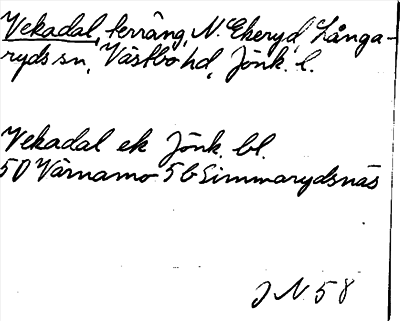 Vekadal, terräng, N. Ekeryd, Långa-
ryds sn, Västbo hd, Jönk. l.
Vekadal ek Jönk. bl.
5D Värnamo 5b Simmarydsnäs
J N. 58